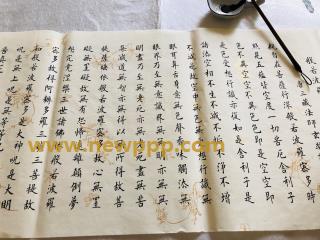 般若波羅
三藏法師玄
在菩薩行深般若波羅蜜多時
照見五蘊皆空度一切苦厄舍利子
色不異空空不異色色即是空空即
是色受想行識亦復如是舍利子是
諸法空相不生不滅不垢不淨不增
不減是故空中無色無受想行識無
眼耳鼻舌身意無色聲香味觸法無
眼界乃至無意識界無無明亦無無
明盡乃至無老死亦無老死盡無苦
集滅道無智亦無得以無所得故菩
提薩埵依般若波羅蜜多故心無罣
礙無罣礙故無有恐怖遠離顛倒夢
想究竟涅槃三世諸佛依般若波羅
蜜多故得阿耨多羅三藐三菩提故
知般若波羅蜜多是大神咒是大明
咒是無上咒是無等等咒
www.newppp.com